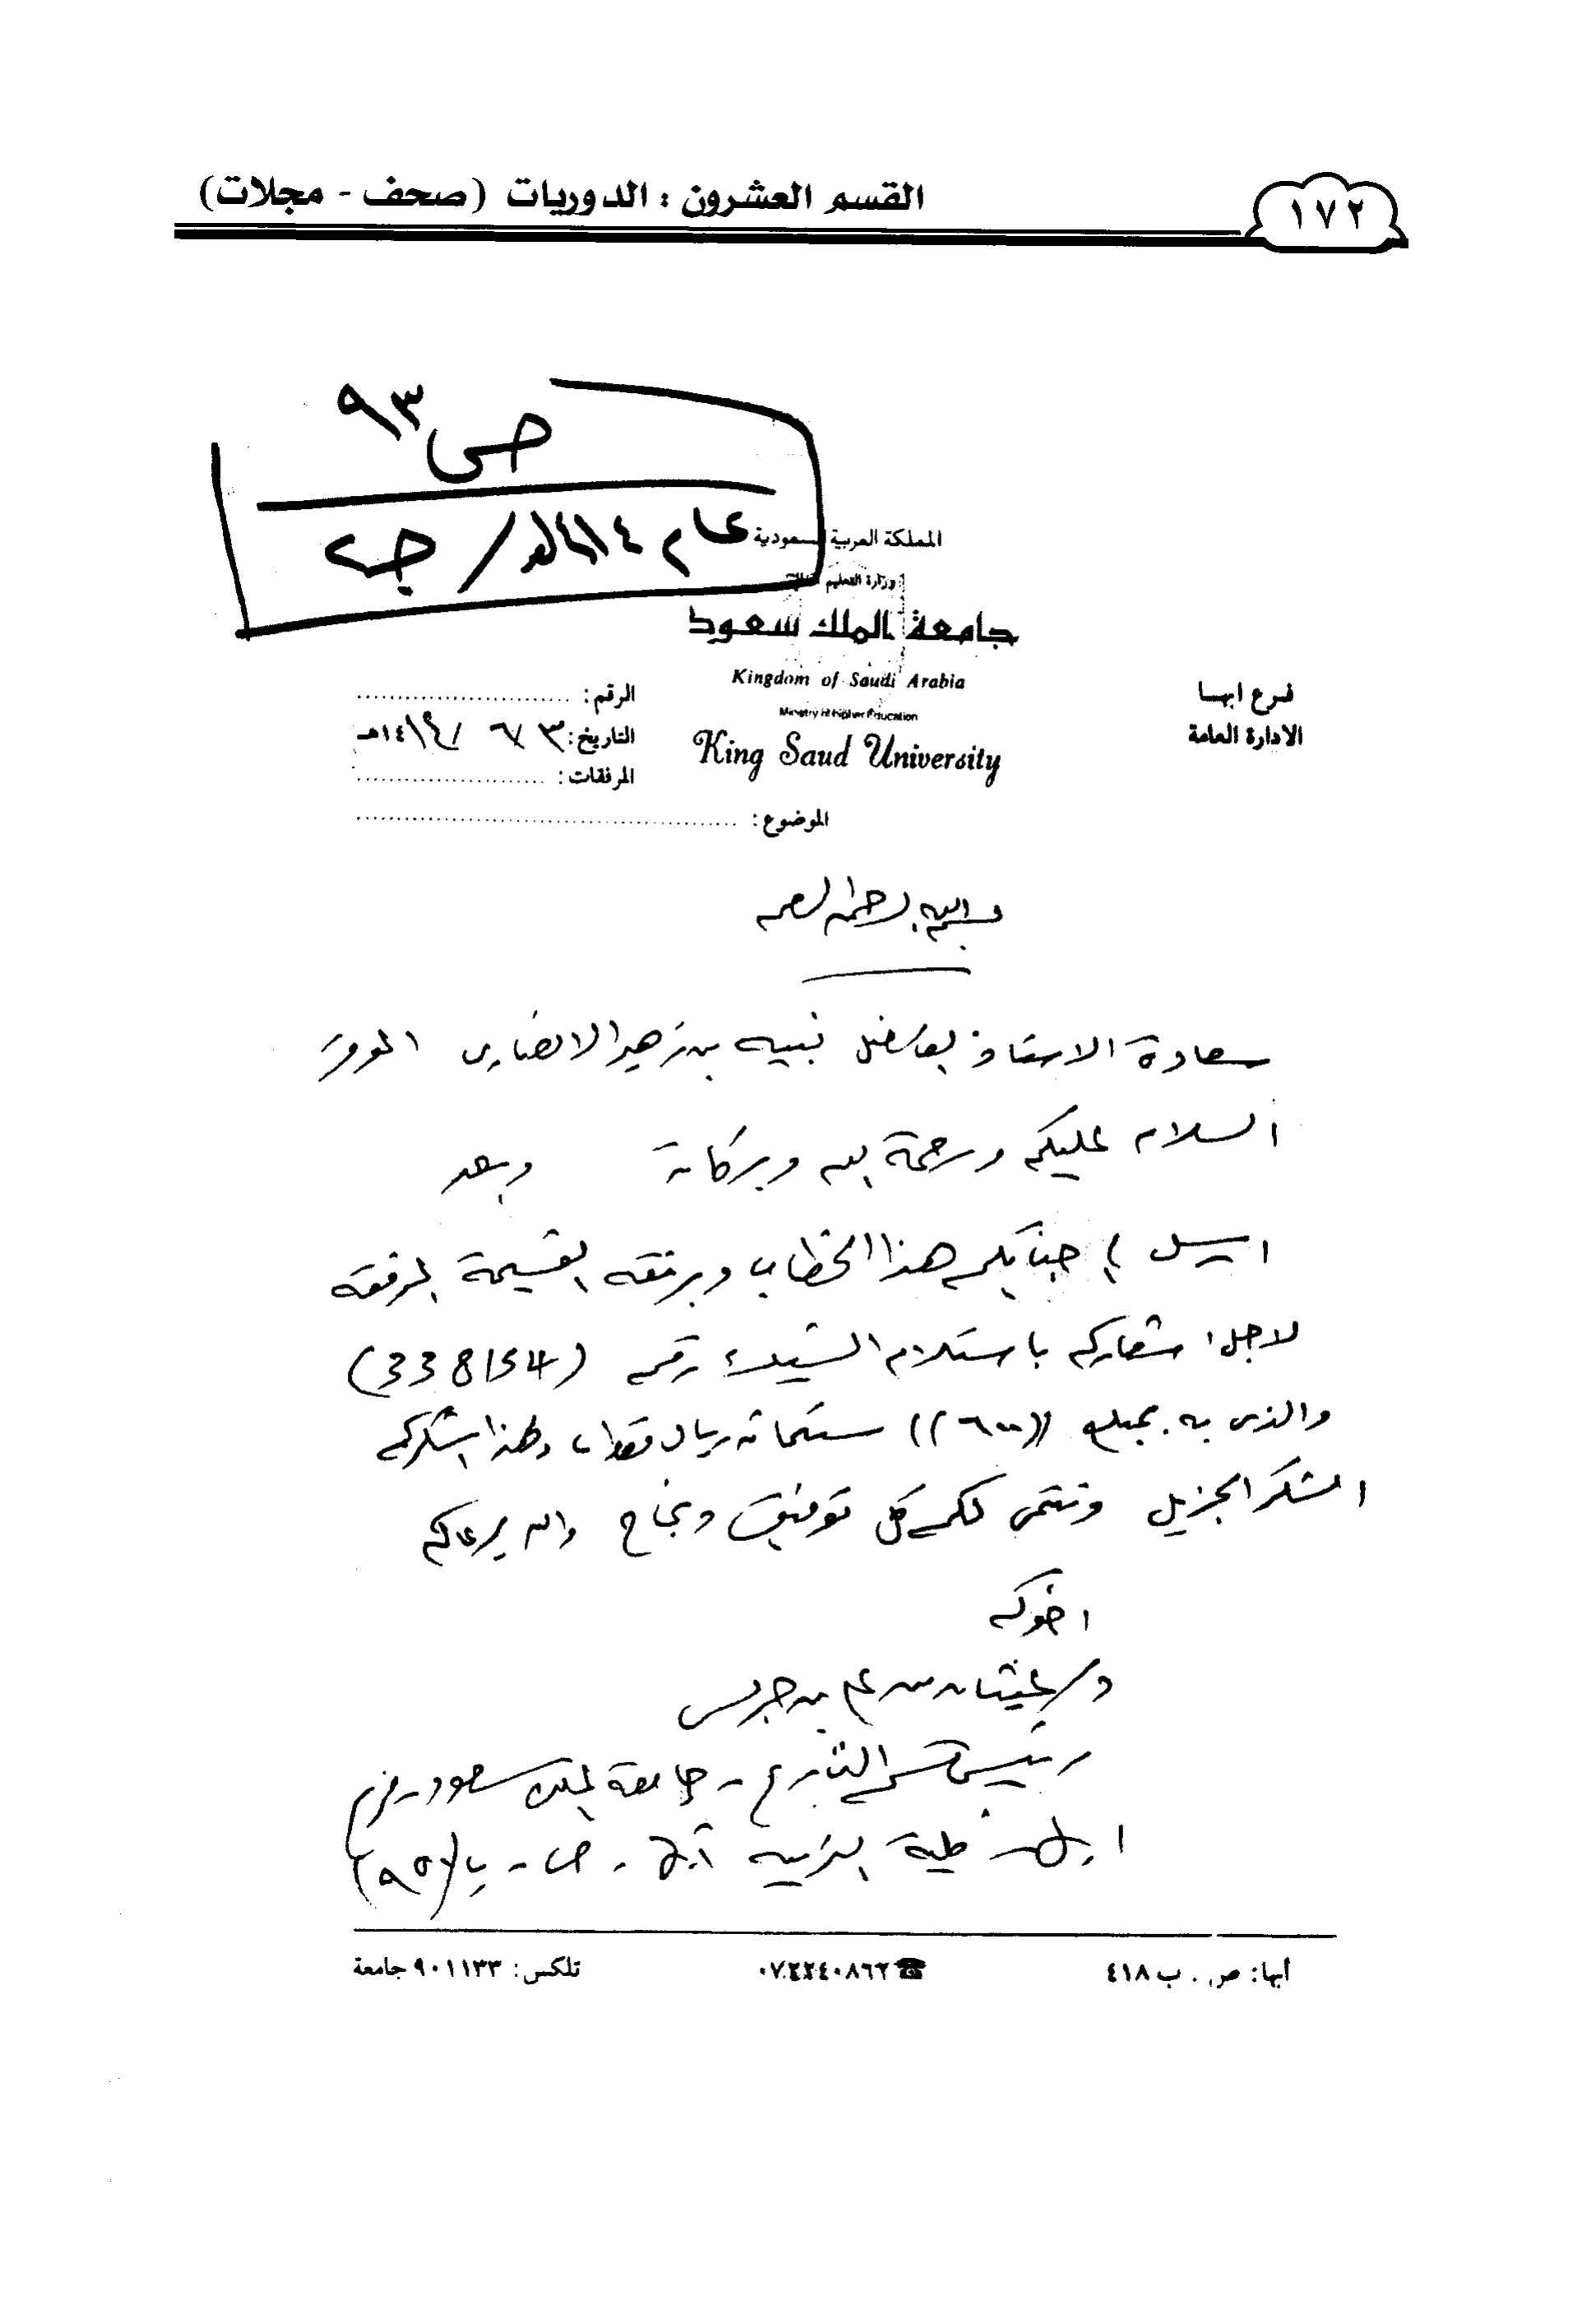 ١٧٢
القسم العشرون : الدوريات (صحف - مجلات)
ص ٩٣
عام ١٤١٤هـ / ج٢
المملكة العربية السعودية
وزارة التعليم العالي
جامعة الملك سعود
Kingdom of Saudi Arabia
Ministry of Higher Education
King Saud University
فرع ابها
الادارة العامة
الرقم:
التاريخ: ٣ / ٦ / ١٤١٤هـ
المرفقات:
الموضوع:
بسم الله الرحمن الرحيم
سعادة الاستاذ الفاضل نبيه بن زهير الانصاري الموقر
السلام عليكم ورحمة الله وبركاته وبعد
ارسل الى جنابكم هذا الخطاب وبرفقه القسيمة المرفقه
لاجل اشعاركم باستلام الشيك رقم (338154)
والذي به مبلغ ((٦٠٠)) ستمائة ريال فقط، ولهذا اشكركم
الشكر الجزيل ونتمنى لكم كل توفيق ونجاح والله يرعاكم
اخوكم
د/ غيثان بن علي بن جريس
رئيس قسم التاريخ - جامعة الملك سعود - فرع
ابها - كلية التربيه ابها - ص - ب (٩٥٧)
أبها: ص . ب ٤١٨
☎ ٠٧.٢٢٤٠٨٦٢
تلكس: ٩٠١١٣٣ جامعة